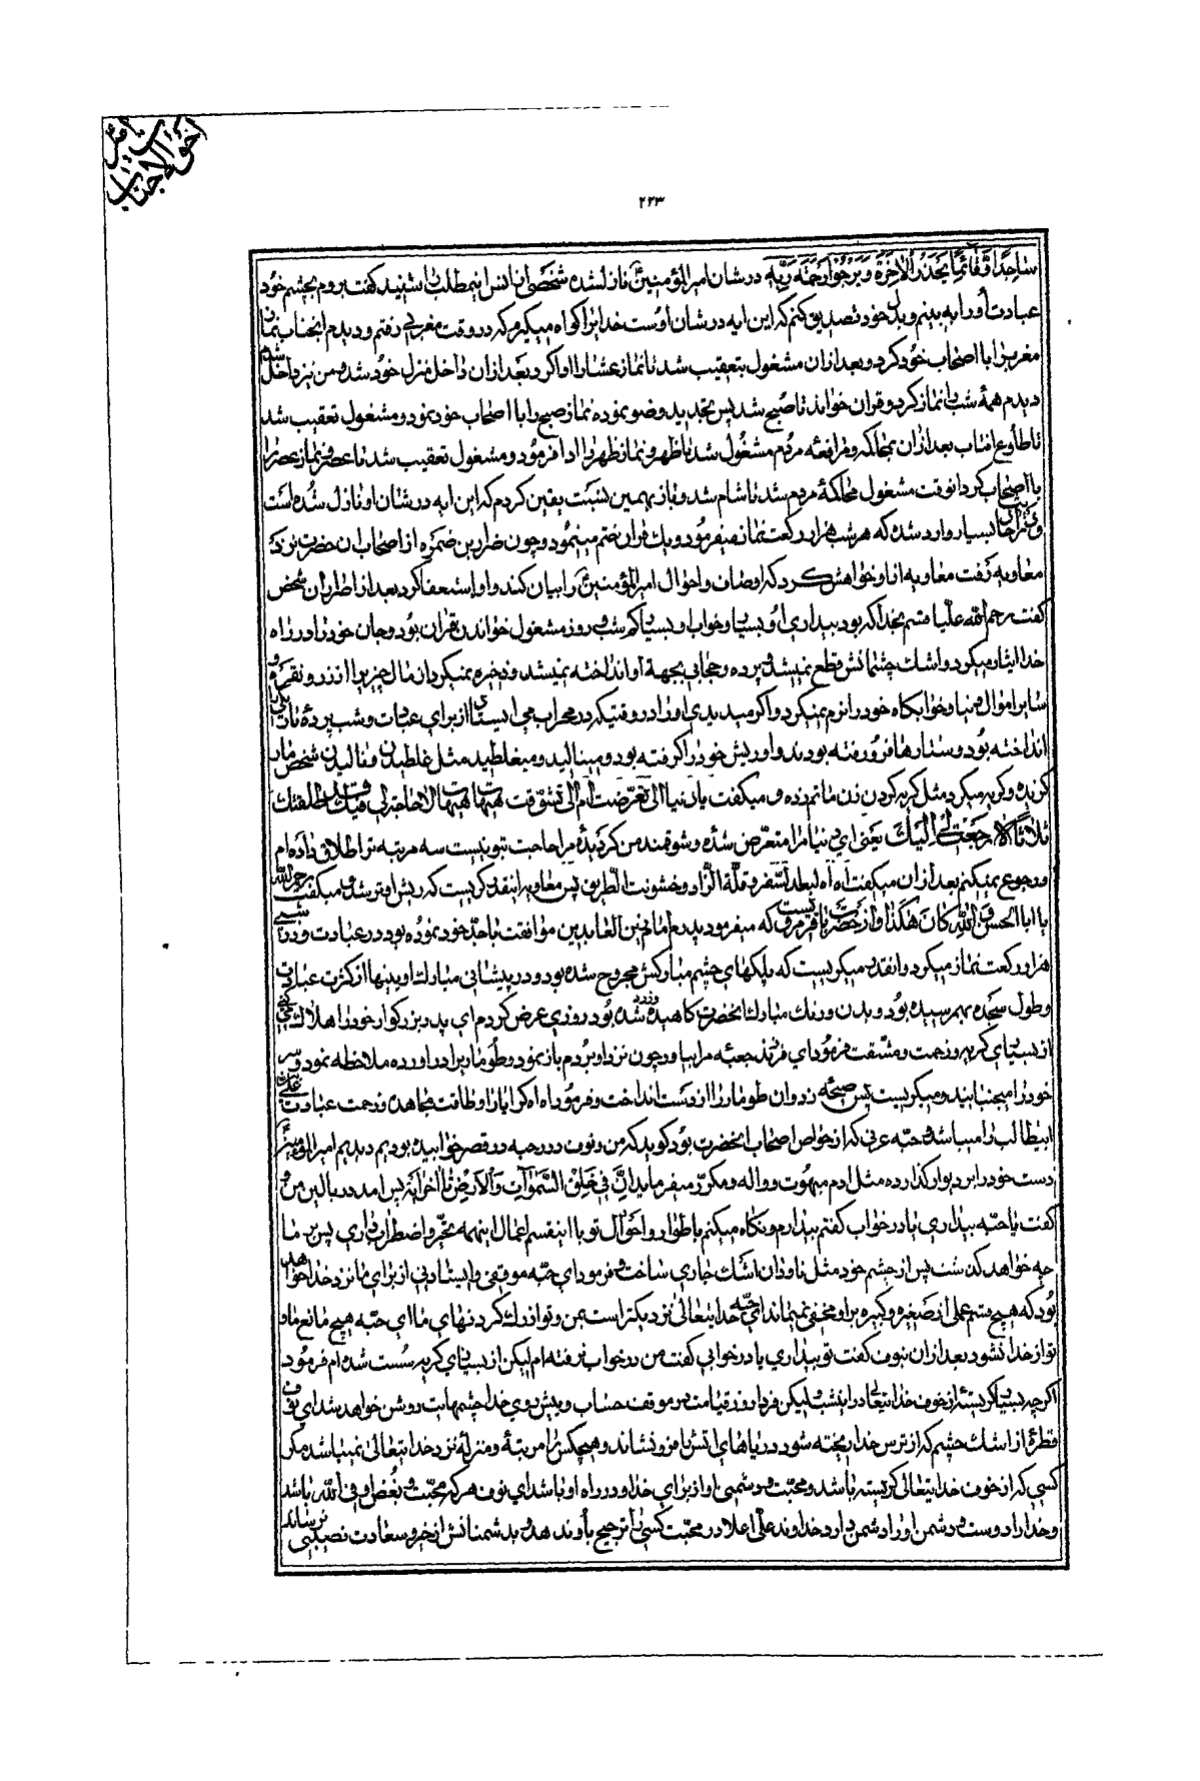 احوالات جناب امیر
۲۲۳
ساجِدًا وَقائِمًا یَحْذَرُ الاخِرَةَ وَیَرْجُوا رَحْمَةَ رَبِّهِ در شان امیرالمؤمنینؑ نازلشده شخصی از انس اینمطلب را شنید گفت بروم بچشم خود
عبادت او را به بینم و بدل خود تصدیق کنم که این ایه در شان اوست خدا را گواه میگیرم که در وقت مغرب رفتم و دیدم انجناب نماز
مغرب را با اصحاب خود کرد و بعد از ان مشغول بتعقیب شد تا نماز عشا را ادا کرد بعد از ان داخل منزل خود شد و من نیز داخل شدم
دیدم همهٔ شب را نماز کرد و قران خواند تا صبح شد پس تجدید وضو نموده نماز صبح را با اصحاب خود نمود و مشغول تعقیب شد
تا طلوع افتاب بعد از ان بمحاکمه و مرافعهٔ مردم مشغول شد تا ظهر و نماز ظهر را ادا فرمود و مشغول تعقیب شد تا عصر و نماز عصر را
با اصحاب کرد انوقت مشغول محاکمهٔ مردم شد تا شام شد و باز بهمین نسبت یقین کردم که این ایه در شان او نازل شده است
و در احادیث بسیار وارد شده که هر شب هزار رکعت نماز میفرمود و یک قران ختم مینمود و چون ضرار بن ضمره از اصحاب ان حضرت نزد
معاویه رفت معاویه از او خواهش کرد که اوصاف و احوال امیرالمؤمنینؑ را بیان کند و او استعفا کرد بعد از اصرار ان شخص
گفت رحم الله علیّا قسم بخدا که بود بیداری او بسیار و خواب او بسیار کم شب و روز مشغول خواندن قران بود و جان خود را در راه
خدا ایثار میکرد و اشک چشمانش قطع نمیشد و پرده و حجابی بجهة او انداخته نمیشد و ذخیره نمیکرد از مال چیزیرا از زر و نقره و
سایر اموال دنیا و خوابگاه خود را نرم نمیکرد و اگر میدیدی او را در وقتیکه در محراب می ایستاد از برای عبادت و شب پردهٔ تاریکی
انداخته بود و ستارها فرو رفته بودند و او ریش خود را گرفته بود و مینالید و میغلطید مثل غلطیدن و نالیدن شخص مار
گزیده و گریه میکرد مثل گریه کردن زن ماتم زده و میگفت یا دنیا الیّ تعرضت ام الیّ تشوّقت هیهات هیهات لا حاجة لی فیک قد طلقتک
ثلاثًا لا رَجْعَتَ لی اِلَیْکَ یعنی ای دنیا مرا متعرّض شدهٔ و شوقمند من گردیدهٔ مرا حاجت بتو نیست سه مرتبه ترا طلاق داده ام
و رجوع نمیکنم بعد از ان میگفت اه اه لبعد السّفر و قلّة الزّاد و خشونت الطّریق پس معاویه انقدر گریست که ریش او تر شد و میگفت رحم الله
یا ابا الحسن و الله کان هکذا و از حضرت باقر مرویست که میفرمود پدرم امام زین العابدین موافقت با جدّ خود نموده بود در عبادت و در شبی
هزار رکعت نماز میکرد و انقدر میگریست که پلکهای چشم مبارکش مجروح شده بود و در پیشانی مبارک او پینها از کثرت عبادت
و طول سجده بهم رسیده بود و بدن و رنگ مبارک انحضرت کاهیده و زرد شده بود روزی عرض کردم ای پدر بزرگوار خود را هلاک می کنی
از بسیاری گریه و زحمت و مشقت فرمود ای فرزند جعبهٔ مرا بیاور چون نزد او بردم باز نمود و طوماریرا در اورده ملاحظه نمود و سر
خود را میجنبانید و میگریست پس صیحه زد و ان طومار را از دست انداخت و فرمود اه اه کرا یارا و طاقت مجاهده و زحمت عبادت علی بن
ابیطالب را میباشد و حبّه عرنی که از خواص اصحاب انحضرت بود گوید که من و نوف در رحبه در قصر خوابیده بودیم دیدیم امیرالمومنینؑ
دست خود را بر دیوار گذارده مثل ادم مبهوت و واله و مکرّر میفرماید اِنَّ فِی خَلْقِ السَّمٰواتِ وَالاَرْضِ تا اخر ایه پس امد در بالین من و
گفت یا حبّه بیداری یا در خواب گفتم بیدارم و نگاه میکنم باطوار و احوال تو با اینقسم اعمال اینهمه تحیّر و اضطراب داری پس بر ما
چه خواهد گذشت پس از چشم خود مثل ناودان اشک جاری ساخت و فرمود ای حبّه موقفی و ایستادنی از برای ما نزد خدا خواهد
بود که هیچ قسم عملی از صغیره و کبیره بر او مخفی نمیماند ای حبّه خدا یتعالی نزدیکتر است بمن و تو از رک گردنهای ما ای حبّه هیچ مانع ما و
تو از خدا نشود بعد از ان بنوف گفت تو بیداری یا در خوابی گفت من در خواب نرفته ام لیکن از بسیاری گریه سست شده ام فرمود
اگرچه بسیار گریستهٔ از خوف خدا یتعالی در اینشب لیکن فردا روز قیامت در موقف حساب و پیش روی خدا چشمهایت روشن خواهد شد ای نوف
قطرهٔ از اشک چشم که از ترس خدا ریخته شود دریاهای اتش را فرو نشاند و هیچکس را مرتبهٔ و منزلهٔ نزد خدا یتعالی نمیباشد مگر
کسی که از خوف خدا یتعالی گریسته باشد و محبّت و دشمنی او از برای خدا و در راه او باشد ای نوف هر که محبّت و بغض او فی الله باشد
و خدا را دوست و دشمن او را دشمن دارد خداوند علّی اعلا در محبّت کسی را ترجیح باو ندهد و بدشمنانش از خیر و سعادت نصیبی نرساند